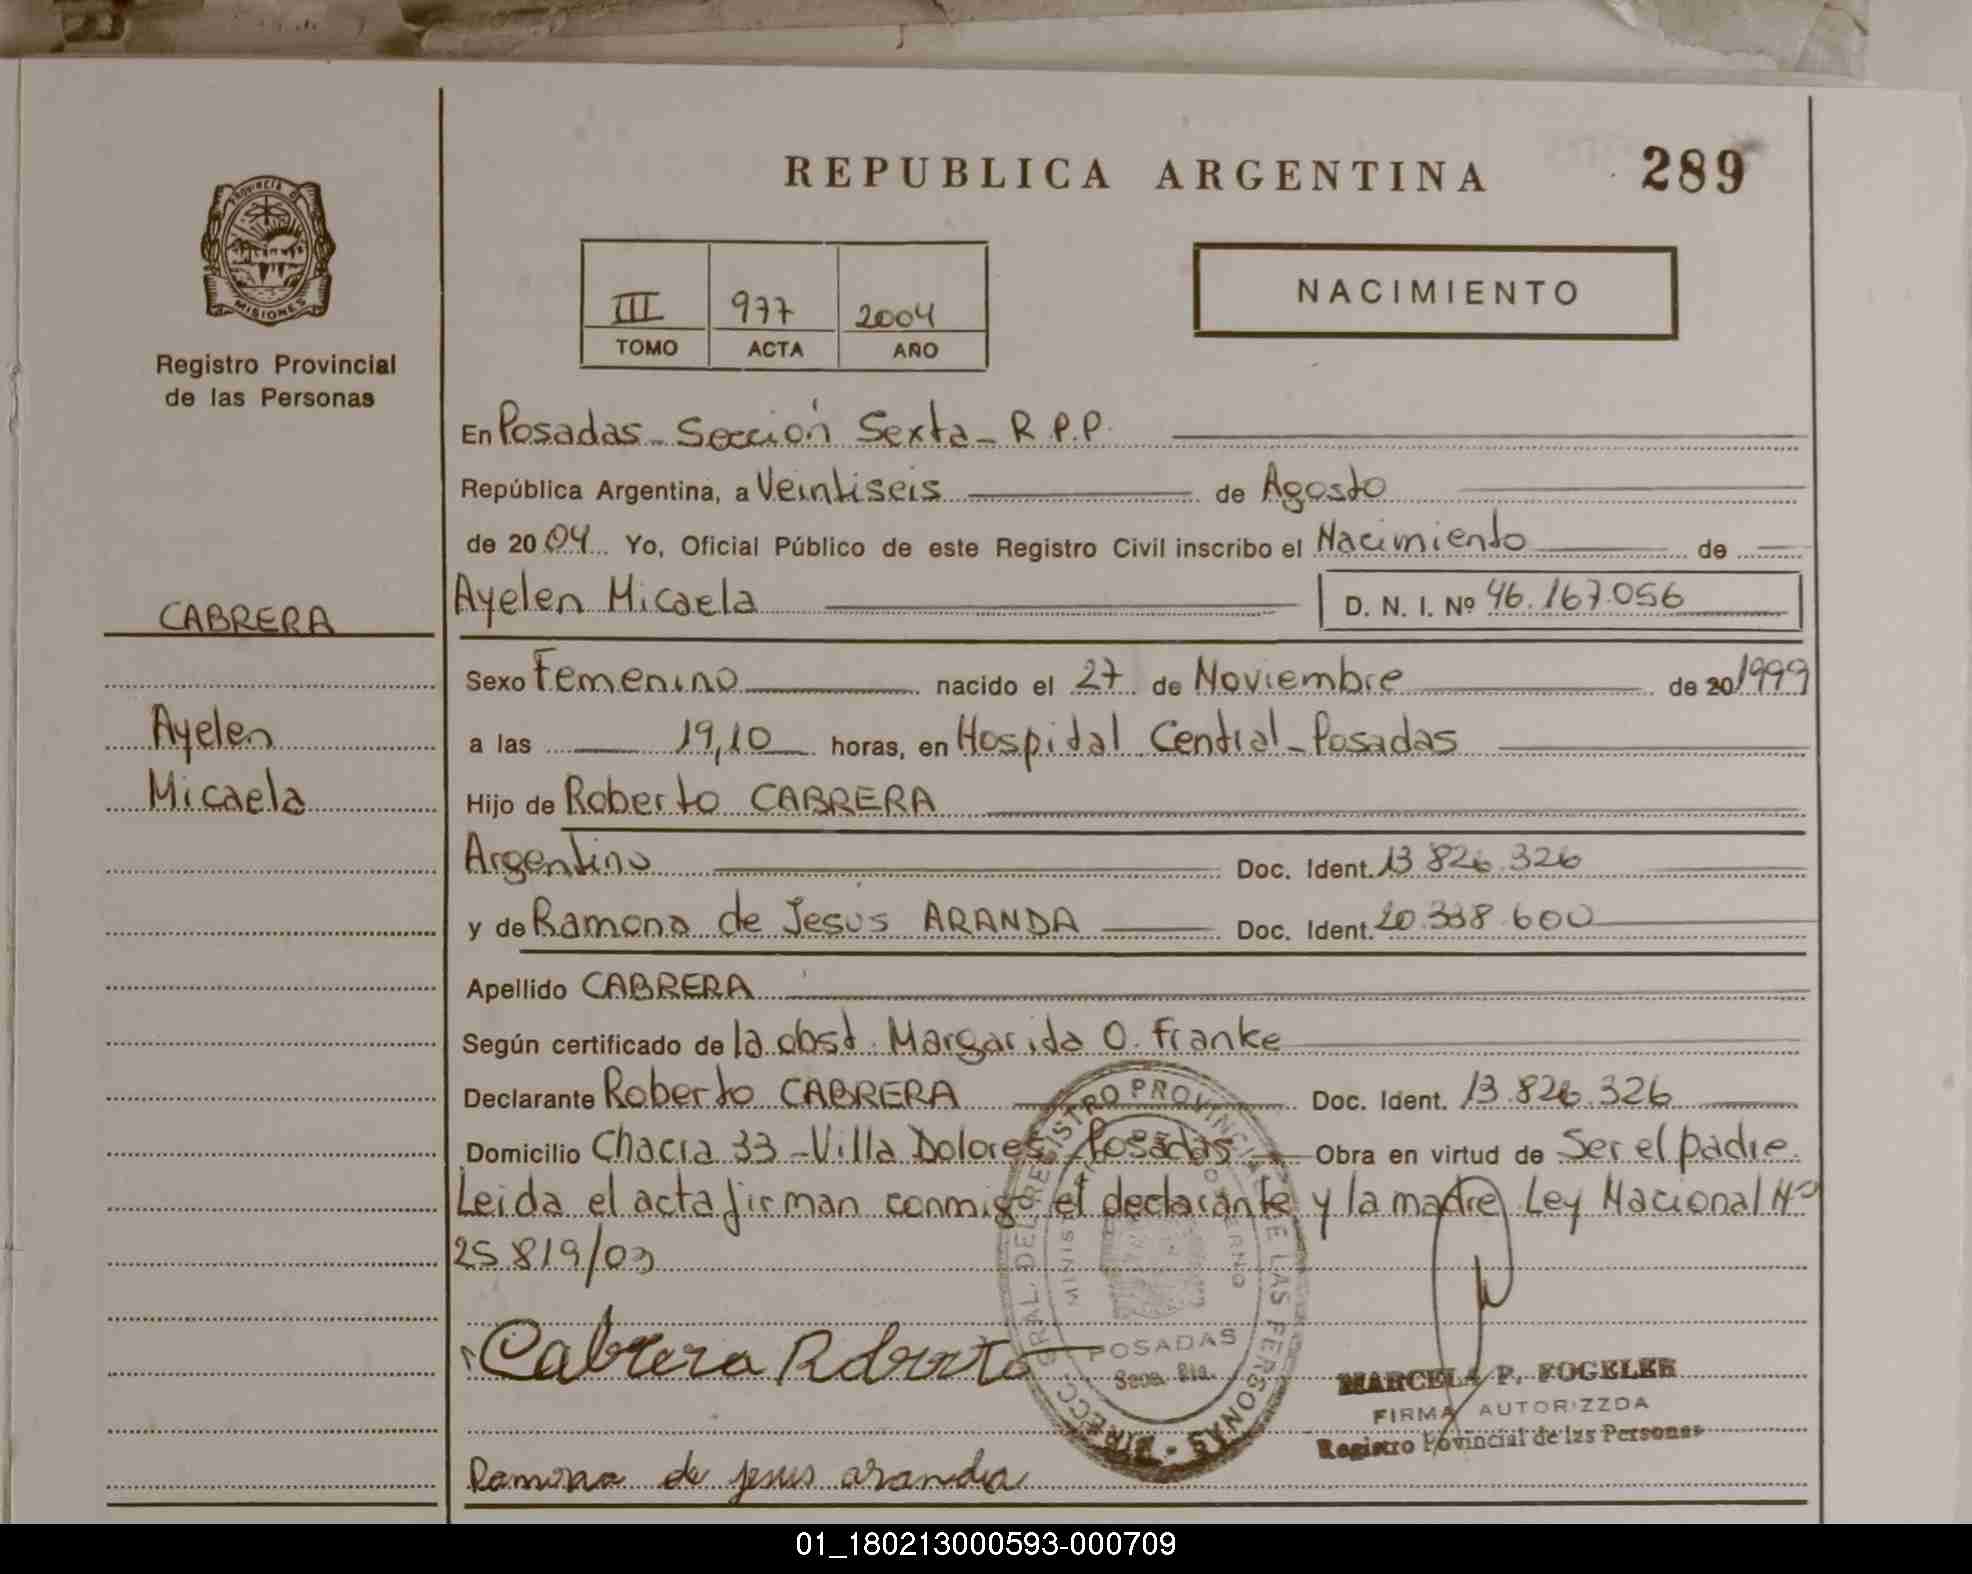 REPUBLICA ARGENTINA 289
PROVINCIA DE
MISIONES
Registro Provincial
de las Personas
III 977 2004
TOMO ACTA AÑO
NACIMIENTO
En Posadas - Sección Sexta - R.P.P.
República Argentina, a Veintiseis de Agosto
de 2004 Yo, Oficial Público de este Registro Civil inscribo el Nacimiento de
CABRERA
Ayelen Micaela D. N. I. Nº 46.167.056
Sexo Femenino nacido el 27 de Noviembre de 20 1999
Ayelen
a las 19,10 horas, en Hospital Central - Posadas
Micaela
Hijo de Roberto CABRERA
Argentino Doc. Ident. 13.826.326
y de Ramona de Jesus ARANDA Doc. Ident. 20.338.600
Apellido CABRERA
Según certificado de la obst. Margarida O. Franke
Declarante Roberto CABRERA Doc. Ident. 13.826.326
Domicilio Chacra 33 - Villa Dolores - Posadas - Obra en virtud de Ser el padre.
Leida el acta firman conmigo el declarante y la madre Ley Nacional Nº
25.819/03
Cabrera Roberto
DIRECC. GRAL. DEL REGISTRO PROVINCIAL DE LAS PERSONAS
POSADAS
MARCELA P. FOGELER
FIRMA AUTORIZZDA
Registro Povincial de las Personas
Ramona de jesus aranda
01_180213000593-000709